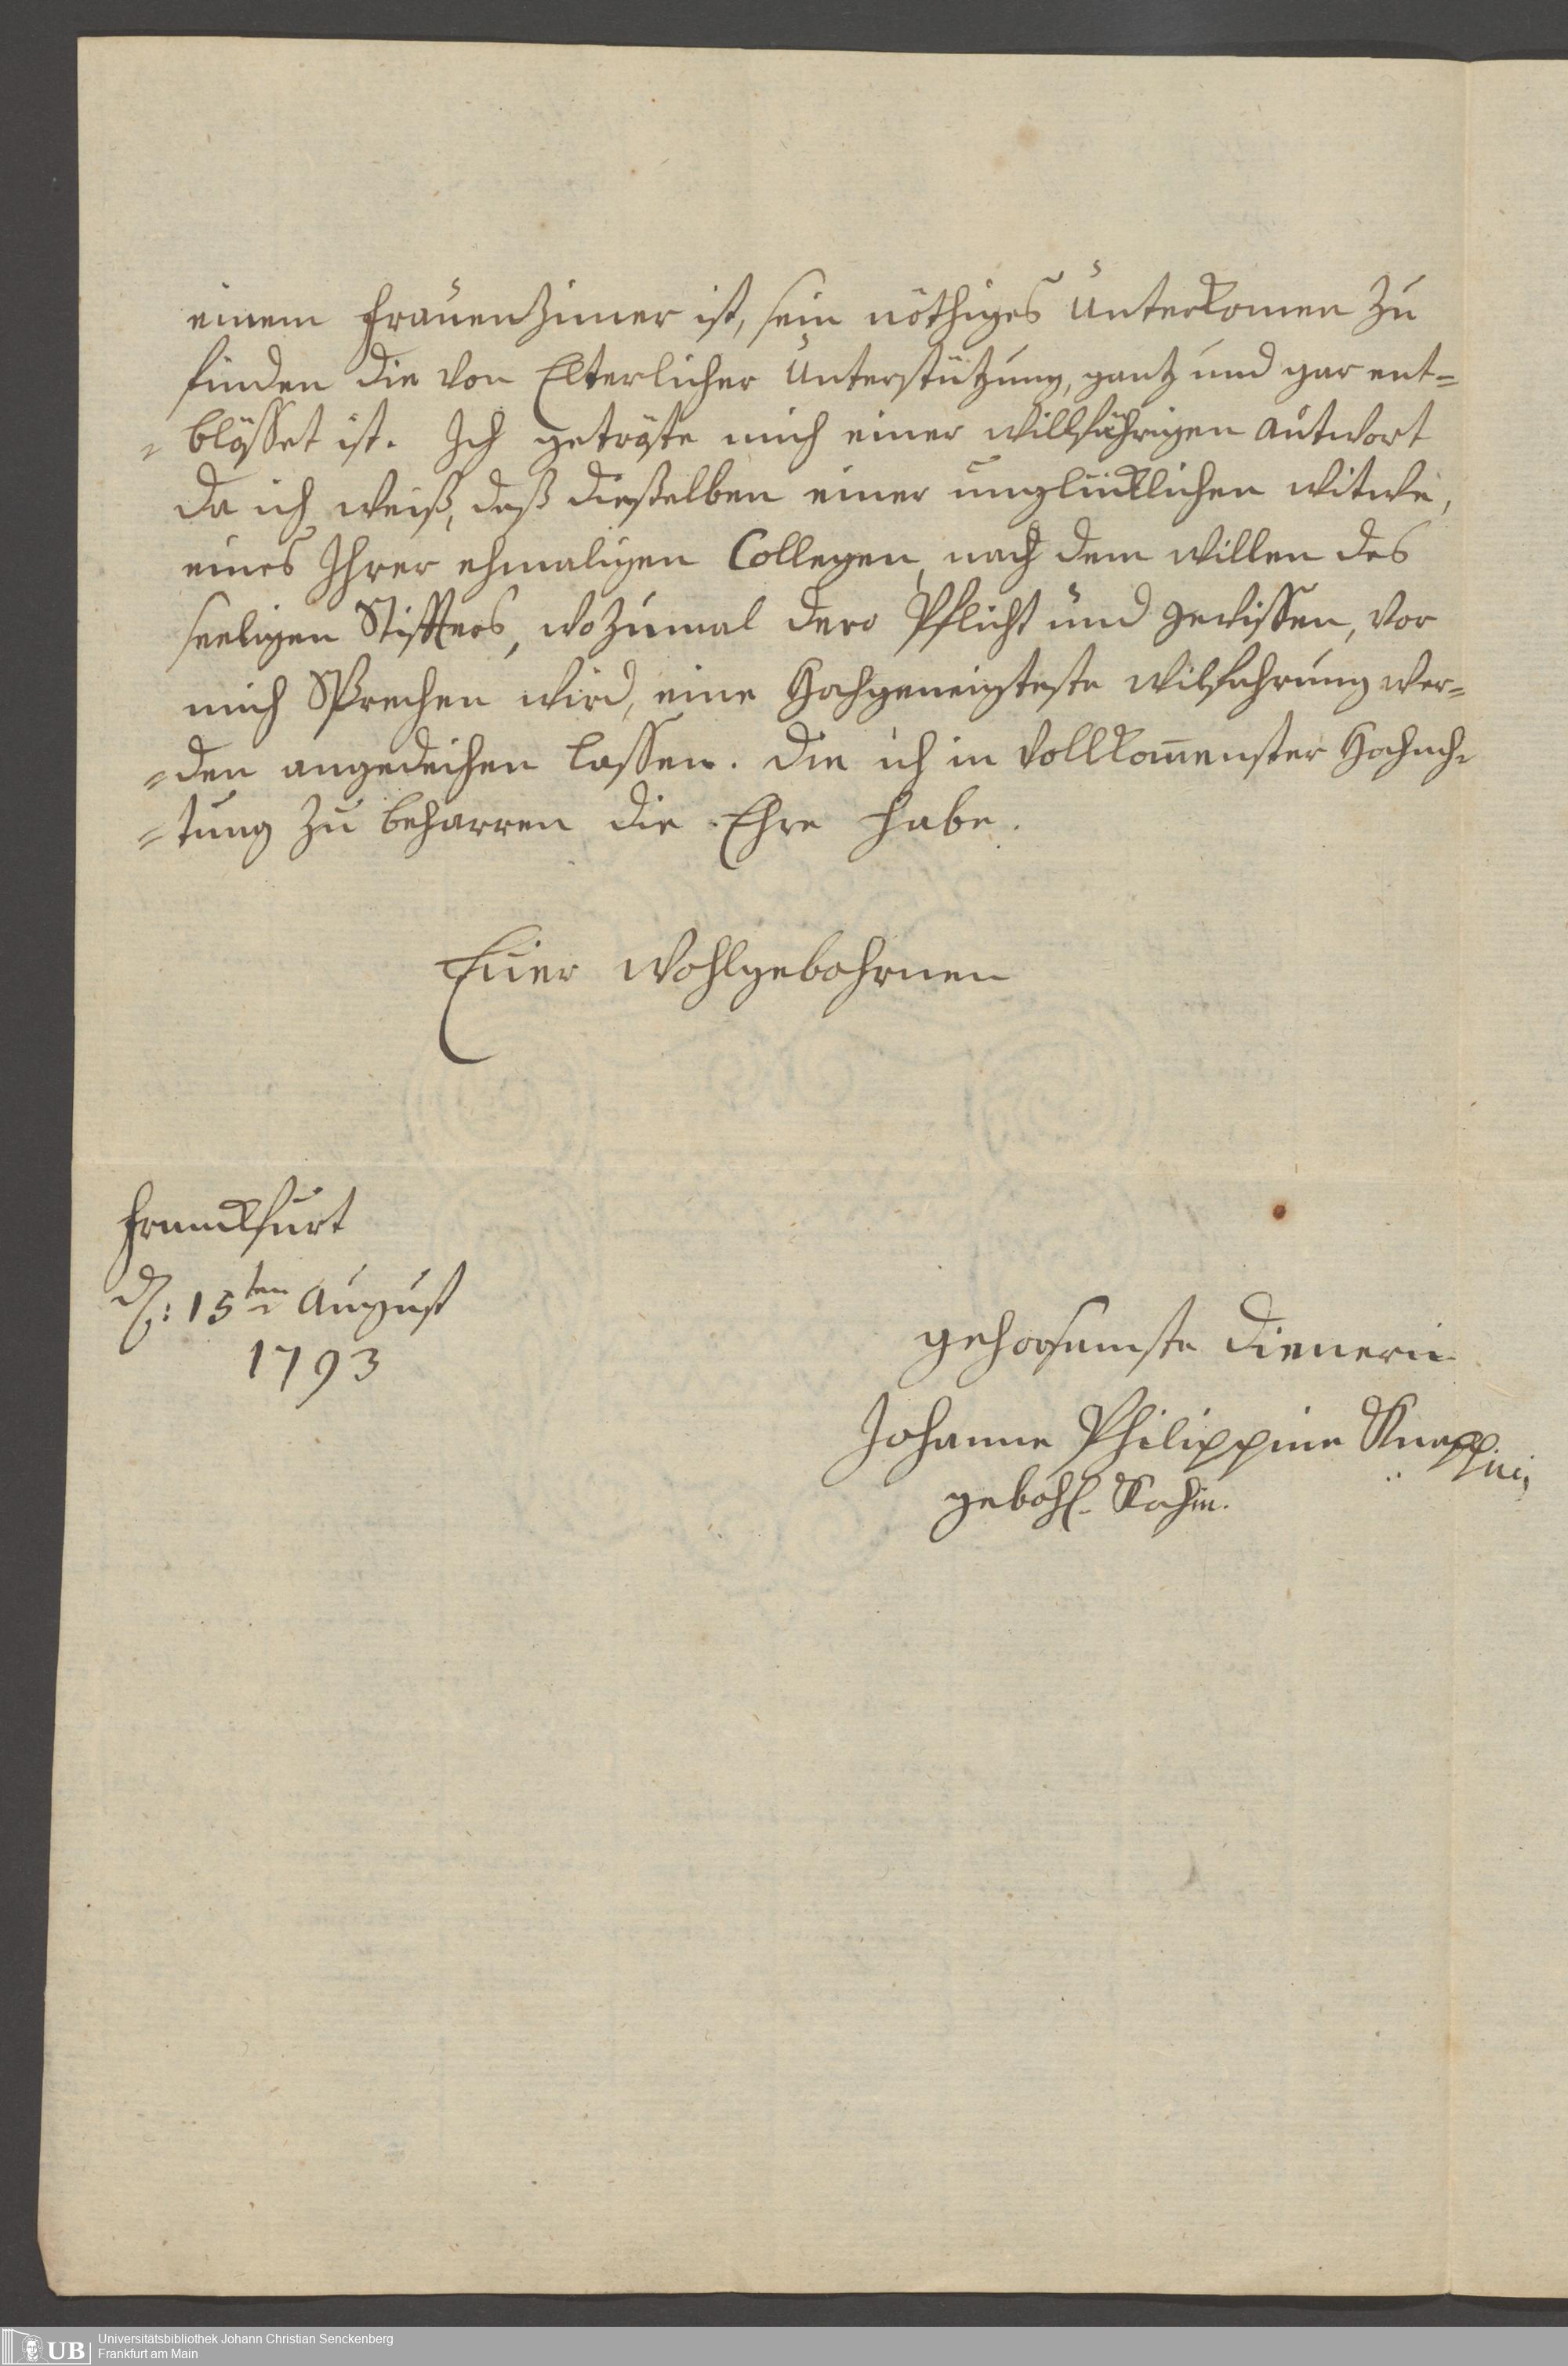 einem Frauenzimer ist, sein nöthiges Unterkomen zu
finden die von Elterlicher Unterstützung, gantz und gar ent=
=blösset ist. Ich getröste mich einer willfährigen antwort
da ich weiß, daß dießelben einer unglücklichen witwe,
eines Ihrer ehmaligen Collegen, nach dem willen des
seeligen Stiffters, wozumal dero Pflicht und gewissen, vor
mich Sprechen wird, eine Hochgeneigteste wilfahrung wer=
=den angedeihen lassen. Die ich in vollkom̅enster Hochach=
=tung zu beharren die Ehre habe.
Euer Wohlgebohrnen
Franckfurt
d: 15ten August
1793
gehorsamste Dienerin
Johanne Philippine Knappin
gebohr. Kochin.
Universitätsbibliothek Johann Christian Senckenberg
Frankfurt am Main
UB